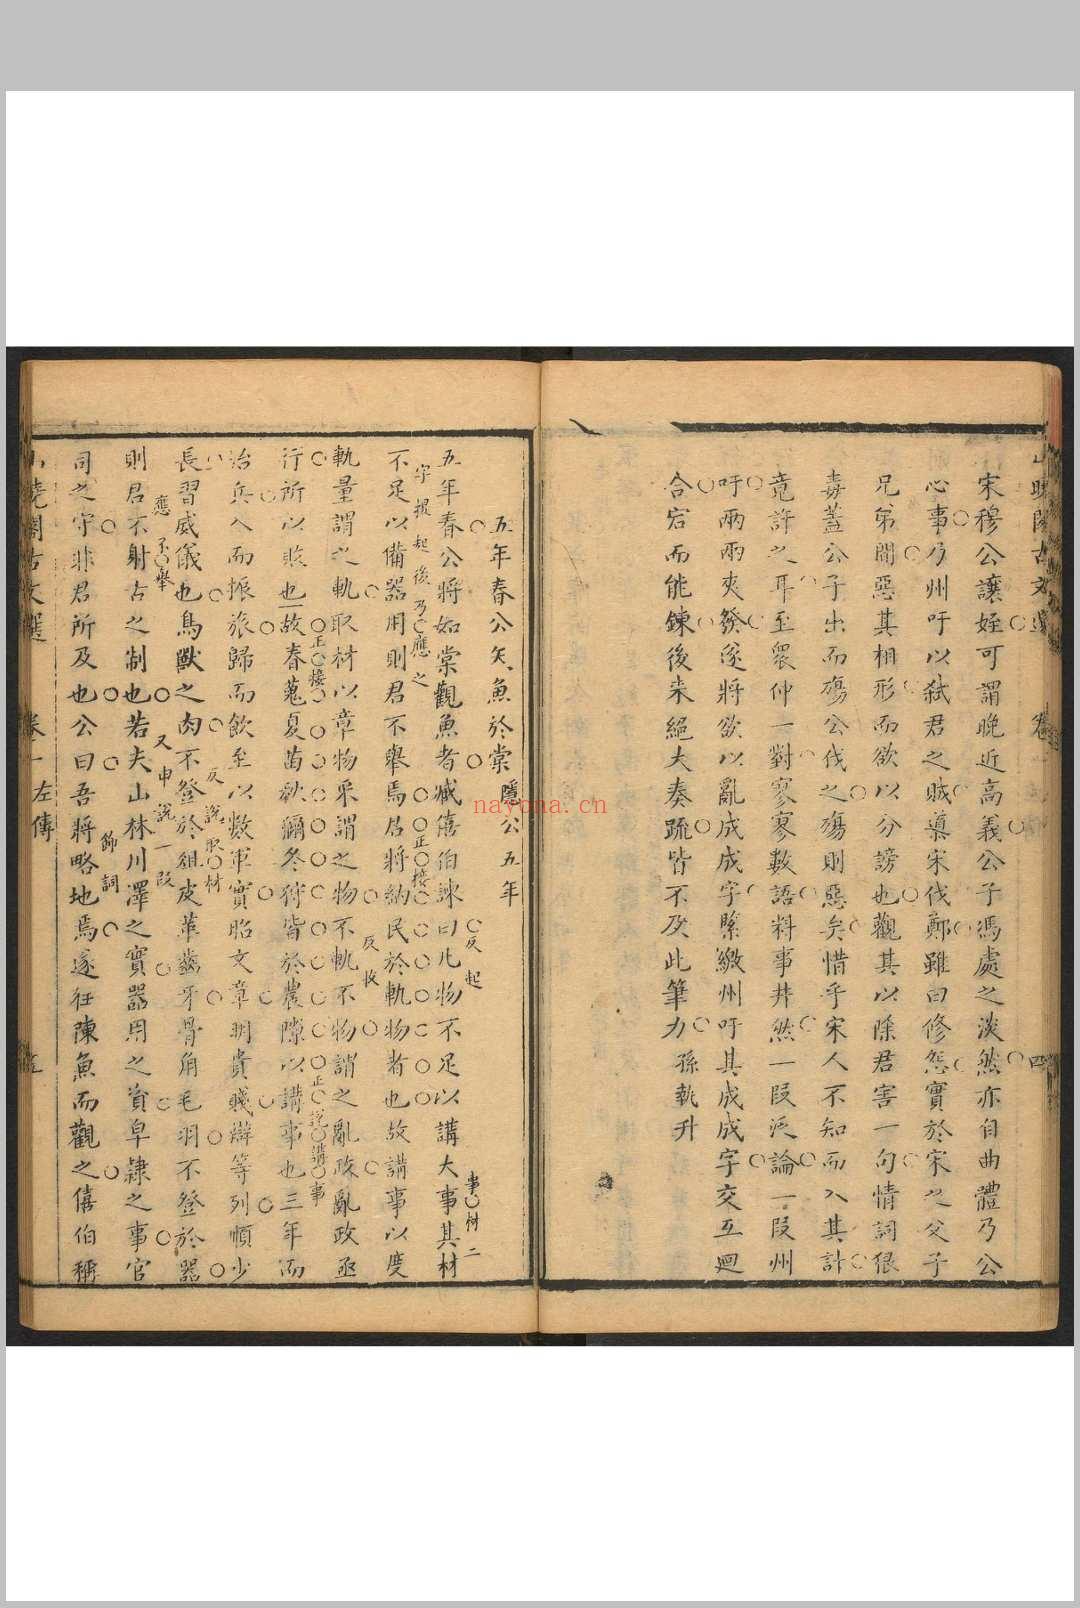 宋穆公讓姪可謂晚近高義公子馮處之淡然亦自曲體乃公
心事乃州吁以弑君之賊導宋伐鄭雖曰修怨實於宋之父子
兄弟間惡其相形而欲以分謗也觀其以除君害一句情詞俱
毒蓋公子出而殤公伐之殤則惡矣惜乎宋人不知而入其計
竟許之耳至衆仲一對寥寥數語料事井然一段泛論一段州
吁兩兩夾發遂將欲以亂成成字緊繳州吁其成成字交互迴
合宕而能鍊後來絕大奏疏皆不及此筆力 孫執升
卷一
四
五年春公矢魚於棠 隱公五年
五年春公將如棠觀魚者臧僖伯諫曰凡物不足以講大事其材
反起
事材二
字報起後乃應之
正接
不足以備器用則君不舉焉君將納民於軌物者也故講事以度
反收
軌量謂之軌取材以章物采謂之物不軌不物謂之亂政亂政亟
正接
正說講事
行所以敗也故春蒐夏苗秋獮冬狩皆於農隙以講事也三年而
治兵入而振旅歸而飲至以數軍實昭文章明貴賤辯等列順少
反說取材
長習威儀也鳥獸之肉不登於俎皮革齒牙骨角毛羽不登於器
應不舉
又申說一段
則君不射古之制也若夫山林川澤之實器用之資皁隸之事官
飾詞
司之守非君所及也公曰吾將略地焉遂往陳魚而觀之僖伯稱
曉閣古文選 卷一 左傳 五
nayona.cn